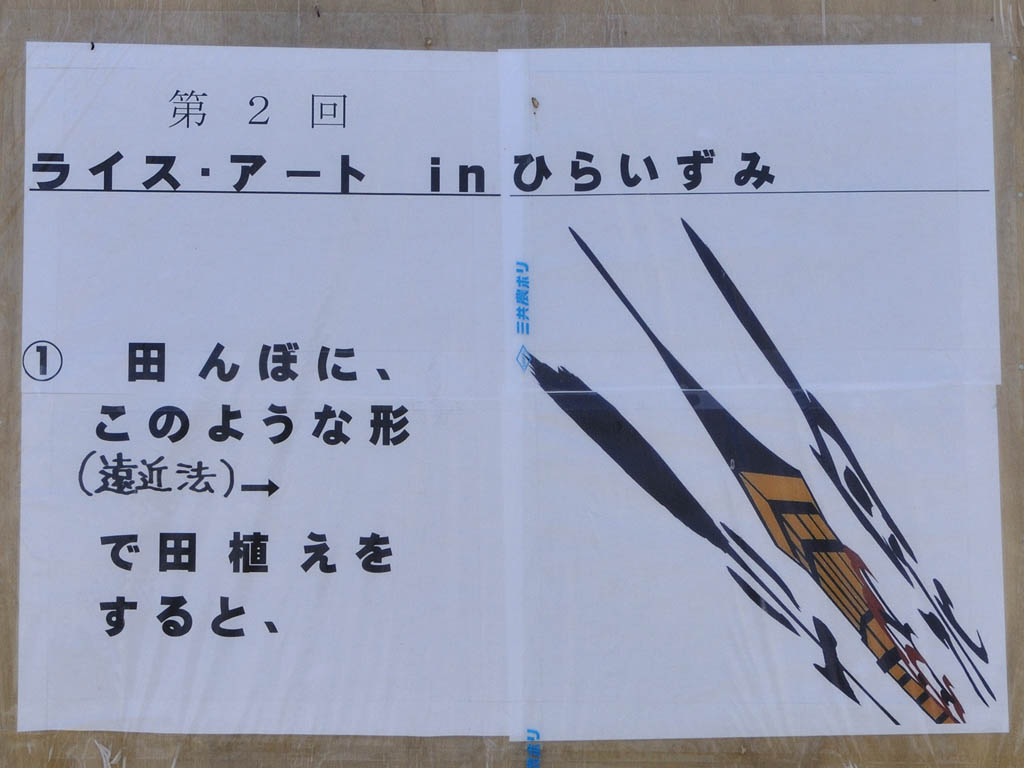 第２回
ライス・アート inひらいずみ
① 田んぼに、
このような形
(遠近法)→
で田植えを
すると、
三共農ポリ
ポリ